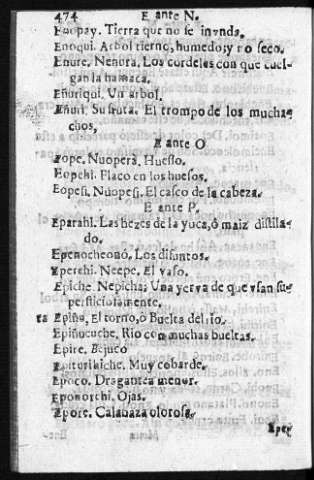 474 E ante N.
Enopay. Tierra que no se inunda.
Enoqui. Arbol tierno, humedo, y no seco.
Enure. Nenura. Los cordeles con que cuel-
gan la hamaca.
Eñuriqui. Un arbol.
Eñuri. Su fruta. El trompo de los mucha-
chos.
E ante O
Eope. Nuopera. Huesso.
Eopehi. Flaco en los huesos.
Eopesi. Nuopesi. El casco de la cabeza.
E ante P.
Eparahi. Las hezes de la yuca, ò maiz distila-
do.
Epenocheonò. Los difuntos.
Eperehi. Neepe. El vaso.
Epiche. Nepicha: Una yerva de que usan su-
persticiosamente.
ra Epiño, El torno, ò Buelta del rio.
Epiñocuche. Rio con muchas bueltas.
Epire. Bejuco
Epiturihiche. Muy cobarde.
Epoco. Dragantea menor.
Eponorchi. Ojas.
Epore. Calabaza olorosa.
Eper